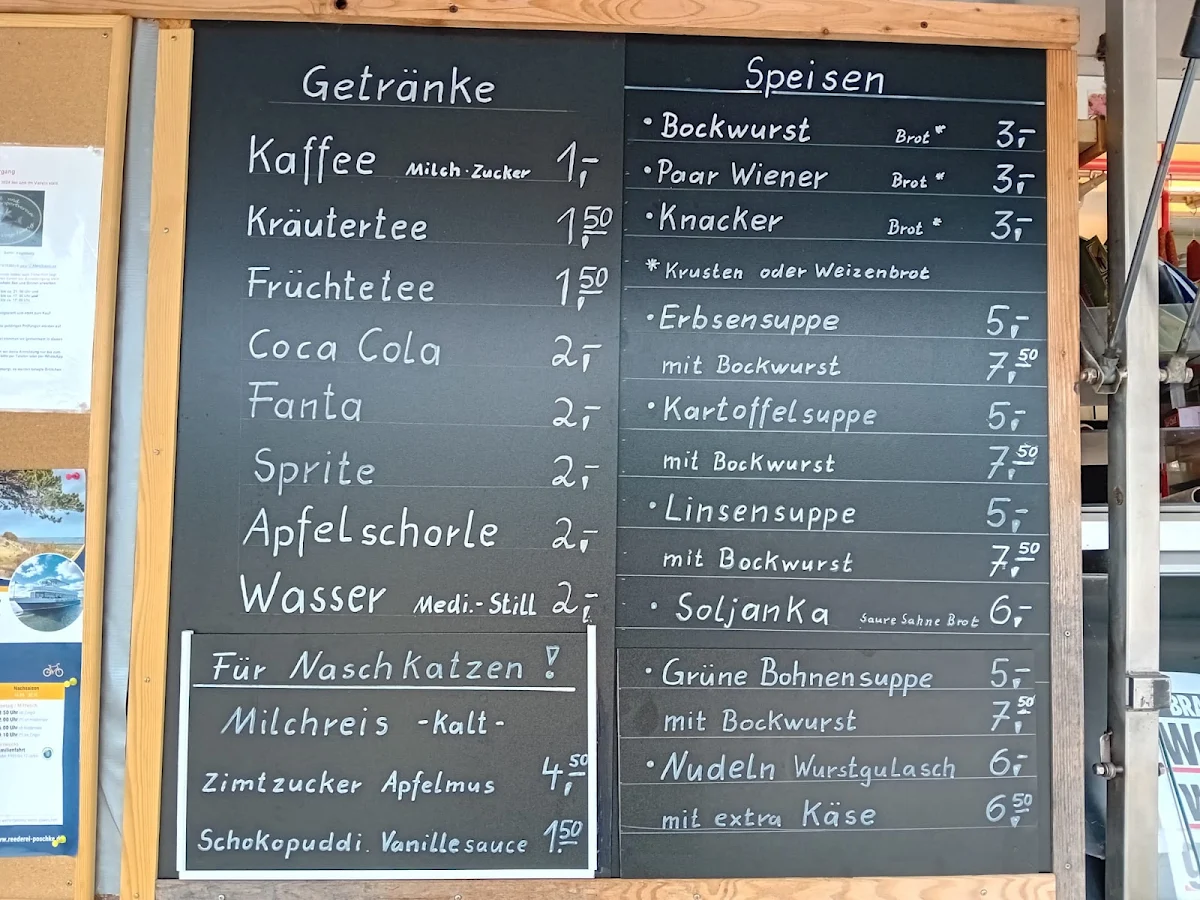 Getränke
Kaffee Milch·Zucker 1,-
Kräutertee 1,50
Früchtetee 1,50
Coca Cola 2,-
Fanta 2,-
Sprite 2,-
Apfelschorle 2,-
Wasser Medi.-Still 2,-
Für Naschkatzen !
Milchreis -Kalt-
Zimtzucker Apfelmus 4,50
Schokopuddi. Vanillesauce 1,50
Speisen
• Bockwurst Brot* 3,-
• Paar Wiener Brot* 3,-
• Knacker Brot* 3,-
*Krusten oder Weizenbrot
• Erbsensuppe 5,-
mit Bockwurst 7,50
• Kartoffelsuppe 5,-
mit Bockwurst 7,50
• Linsensuppe 5,-
mit Bockwurst 7,50
• Soljanka Saure Sahne Brot 6,-
• Grüne Bohnensuppe 5,-
mit Bockwurst 7,50
• Nudeln Wurstgulasch 6,-
mit extra Käse 6,50